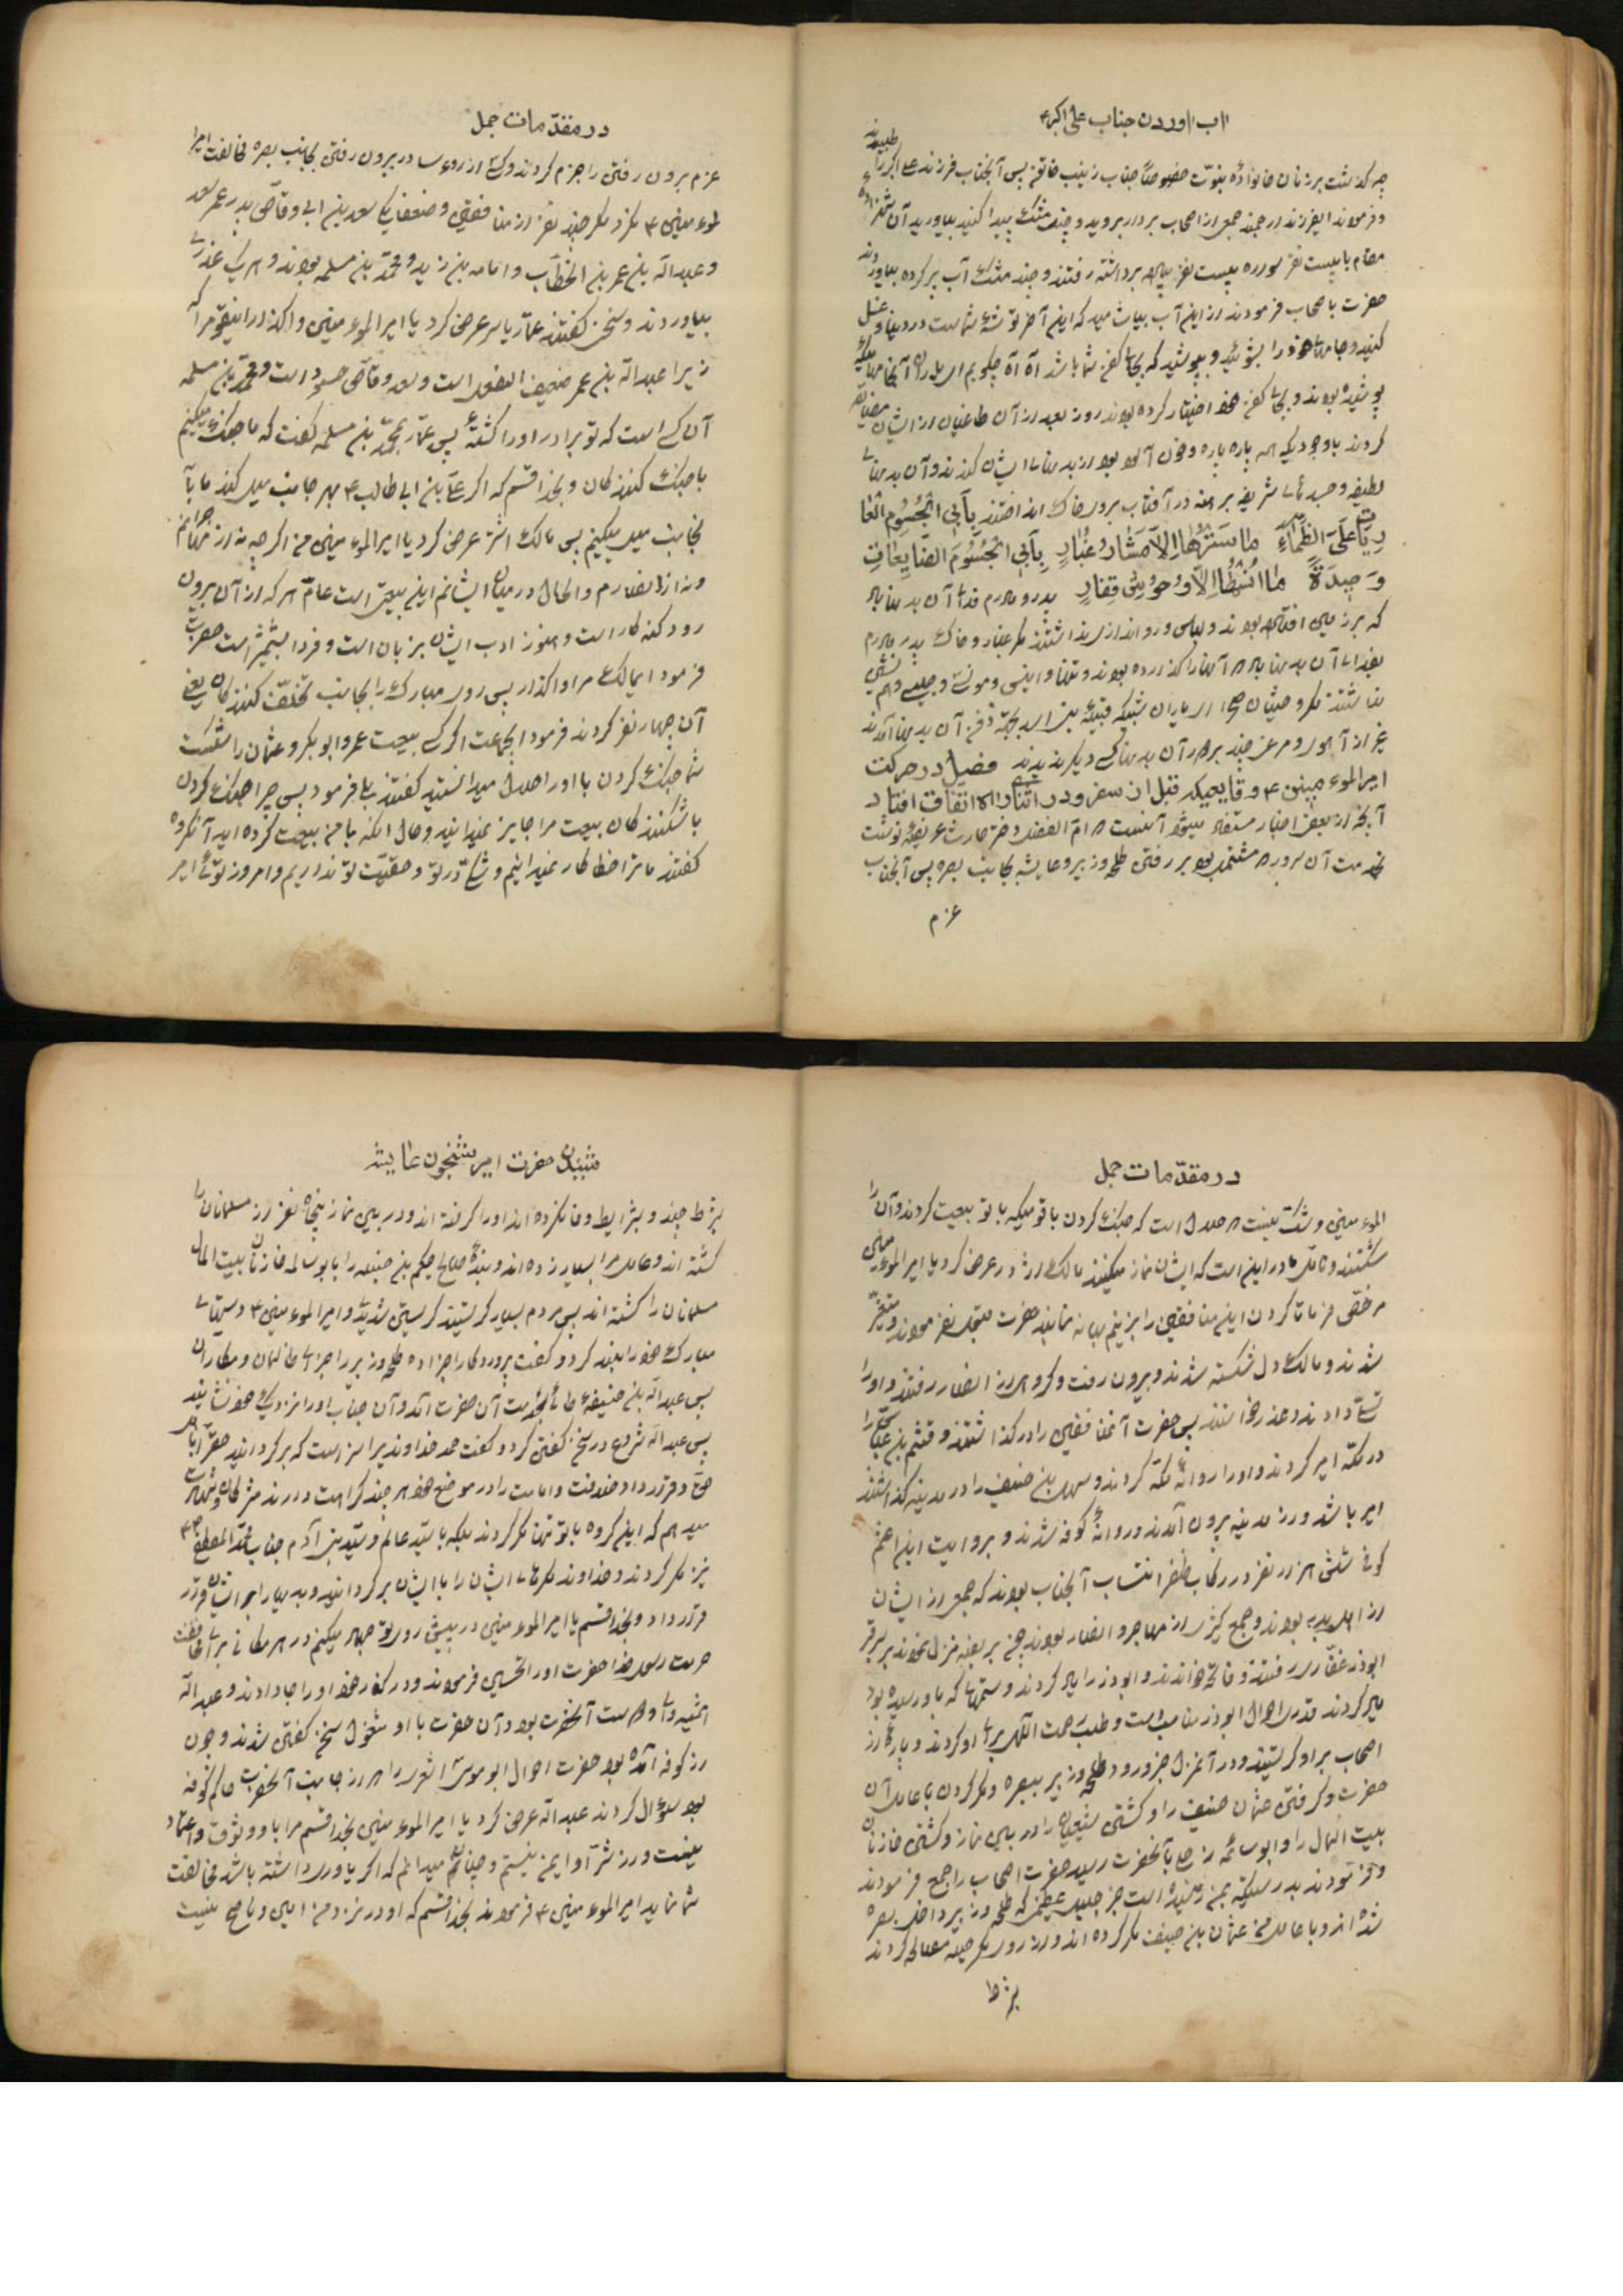 اب اوردن جناب علی اکبر ع
چه گذشت بر زنان خانوادهٔ نبوّت خصوصًا جناب زینب خاتون پس آنجناب فرزند علی اکبر را طلبیدند
و فرمودند ایفرزند ارجمند جمعی از اصحاب بردار بروید و چند مشک پیدا کنید بیاورید آن شهزاده
با بیست نفر سواره بیست نفر پیاده برداشته رفتند و چند مشک آب پر کرده بیاوردند
حضرت باصحاب فرمودند از این آب بیاشامید که این آخر توشهٔ شماست در دنیا و غسل
کنید و جامهای خود را بشوئید و بپوشید که بجای کفن شما باشد آه آه چگویم ای یاران آنجامهائیکه
پوشیده بودند و بجای کفن خود اختیار کرده بودند روز بعد از آن طاغیان از ایشان مضایقه
کردند باوجودیکه همه پاره پاره و خون آلود بود از بدنهای ایشان کندند و آن بدنهای
لطیفه و جسدهای شریفه برهنه در آفتاب بروی خاک انداختند بِاَبِی الْجُسُومِ الْعَا
رِیَاتِ عَلَی الظَّمَاءِ مَا سَتَرَهَا اِلاّ مَشَارُ غُبَارٍ بِاَبِی الْجُسُومَ الضَّایِعَاتِ
وَحِیدَةً مَا اَنِسَهَا اِلاّ وُحُوْشُ قِفَارٍ پدر و مادرم فدای آن بدنهائی
که بر زمین افتاده بودند و لباس و رواندازی نداشتند مگر غبار و خاک پدر و مادرم
بفدای آن بدنهائی که آنها را گذارده بودند و تنها و انیسی و مونسی و جلیسی و هم نشینی
نداشتند مگر وحشیان صحرا ای یاران شبیکه قبیلهٔ بنی اسد بجهة دفن آن بدنها آمدند
غیر از آهو و مرغ چند بر سر آن بدنها کسی دیگر ندیدند فصل در حرکت
امیرالموءمنین ع و قایعیکه قبل از سفر و در اثنای راه اتفاق افتاد
آنچه از بعض اخبار مستفاد میشود آنست که امّ الفضل دختر حارث عریضهٔ نوشت
بخدمت آن سرور که مشتمل بود بر رفتن طلحه و زبیر و عایشه بجانب بصره پس آنجناب
عزم
در مقدّمات جمل
عزم بیرون رفتن را جزم کردند و کسی از روءسا در بیرون رفتن بجانب بصره مخالفت امیرا
لموءمنین ع نکرد مگر چند نفر از منافقین و ضعفا یکی سعد بن ابی وقاص پدر عمر سعد
و عبدالله بن عمر بن الخطاب و اسامه بن زید و محمّد بن مسلمه بودند و هر یک عذری
بیاوردند و سخن گفتند عمّار یاسر عرض کرد یا امیرالموءمنین واگذار اینقوم را که
زیرا عبدالله بن عمر ضعیف العقل است و سعد وقاص حسود است و محمّد بن مسلمه
آن کس است که تو برادر او را کشتهٔ پس عمّار بمحمّد بن مسلمه گفت که ما جنگ میکنیم
با جنگ کنندگان و بخدا قسم که اگر علی بن ابی طالب ع بهر جانب میل کند ما بآ
نجانب میل میکنیم پس مالک اشتر عرض کرد یا امیرالموءمنین من اگرچه نه از مهاجرانم
و نه از انصارم والحال در میان ایشانم این بیعتی است عامّ هر که از آن بیرون
رود گنه کار است و هنوز ادب ایشان بزبان است و فردا بشمشیر است حضرت
فرمود ایمالک مرا واگذار پس روی مبارک را بجانب تخلّف کنندگان یعنی
آن چهار نفر کردند فرمود ایجماعت اگر کسی بیعت عمر و ابوبکر و عثمان را شکست
شما جنگ کردن با او را حلال میدانستید گفتند بلی فرمود پس چرا جنگ کردن
با شکنندگان بیعت مرا جایز نمیدانید و حال آنکه با من بیعت کرده اید آنگروه
گفتند ما ترا خطاکار نمیدانیم و شکّ در تو و حقیّت تو نداریم و امروز توئی امیر
در مقدّمات جمل
الموءمنین و شک نیست که حلال است که جنگ کردن با قومیکه با تو بیعت کردند و آن را
شکستند و تامّل ما در این است که ایشان نماز میکنند مالک اشتر عرض کرد یا امیرالموءمنین
مرخّص فرما تا گردن این منافقین را بزنیم بهانه نمانند حضرت قبول نفرمودند و متغیّر
شدند و مالک دل شکسته شدند و بیرون رفت و گروهی از انصار رفتند و او را
تسلّی دادند و عذر خواستند پس حضرت آن منافقین را در گذاشتند و قثم بن عبّاس را
در مکّه امیر کردند و او را روانهٔ مکّه کردند و سهل بن حنیف را در مدینه گذاشتند
امیر باشد و از مدینه بیرون آمدند و روانهٔ کوفه شدند و بروایت ابن اعثم
کوفی شش هزار نفر در رکاب ظفر انتساب آنجناب بودند که جمعی از ایشان
از اهل بدر بودند و جمع کثیری از مهاجر و انصار بودند چون بربذه منزل نمودند بر سر قبر
ابوذر غفّاری رفتند و فاتحه خواندند و ابوذر را یاد کردند و ستمهائی که باو رسیده بود
یاد کردند قدری احوال ابوذر مناسب است و طلب رحمت الّهی برای او کردند و پارهٔ از
اصحاب بر او گریستند و در آنمنزل خبر ورود طلحه و زبیر ببصره و مکر کردن با عامل آن
حضرت و گرفتن عثمان حنیف را و کشتن شیعیان را در بین نماز و کشتن خازنان
بیت المال را و ابو سالمهٔ زطّی بآنحضرت رسید حضرت اصحاب را جمع فرمودند
و فرمودند بدرستیکه بمن رسیده است خبر جلیل عظیمی که طلحه و زبیر داخل بصره
شده اند و با عامل من عثمان بن حنیف مکر کرده اند و از روی مکر و حیله مصالحه کردند
بشرط
شنیدن حضرت امیر شبخون عایشه
بشرط چند و بشرایط وفا نکرده اند او را گرفته اند و در بین نماز پنجاه نفر از مسلمانان را
کشته اند و عامل مرا بسیار زده اند و بندهٔ صالح حکیم بن جبله را با بو سالمه خازنان بیت المال
مسلمانان را کشته اند پس مردم بسیار گریستند گریستن شدید و امیرالموءمنین ع دستهای
مبارک خود را بلند کرد و گفت پروردگارا جزا ده طلحه و زبیر را جزای ظالمان و مکاران
پس عبدالله بن خلیفهٔ طائی بخدمت آن حضرت آمد و آن جناب او را نزدیک خود نشانید
پس عبدالله شروع در سخن گفتن کرد و گفت حمد خداوندیرا سزاست که برگردانید حقّ را باهل
حقّ و قرار داد خلافت و امامت را در موضع خود هرچند کراهت دارند مشرکان و شهادت
میدهم که این گروه با تو تنها مکر نکردند بلکه با سیّد عالم و سیّد بنی آدم جناب محمّد المصطفی ص
نیز مکر کردند و خداوند مکرهای ایشان را با ایشان برگردانید و بد بسیار برای ایشان قرار
قرار داد و بخدا قسم یا امیرالموءمنین در پیش روی تو جهاد میکنم در هر مکانی برای محافظت
حرمت رسول خدا حضرت او را تحسین فرمودند و در کنار خود او را جا دادند و عبدالله
از شیعه و دوست آنحضرت بود و آن حضرت با او مشغول سخن گفتن شدند و چون
از کوفه آمده بود حضرت احوال ابو موسی اشعری را که از جانب آنحضرت حاکم کوفه
بود سوءال کردند عبدالله عرض کرد یا امیرالموءمنین بخدا قسم مرا باو وثوق و اعتماد
نیست و از شرّ او ایمن نیستم و چنان میدانم که اگر یاوری داشته باشد مخالفت
شما نماید امیرالموءمنین ع فرمودند بخدا قسم که او در نزد من امین و ناصح نیست